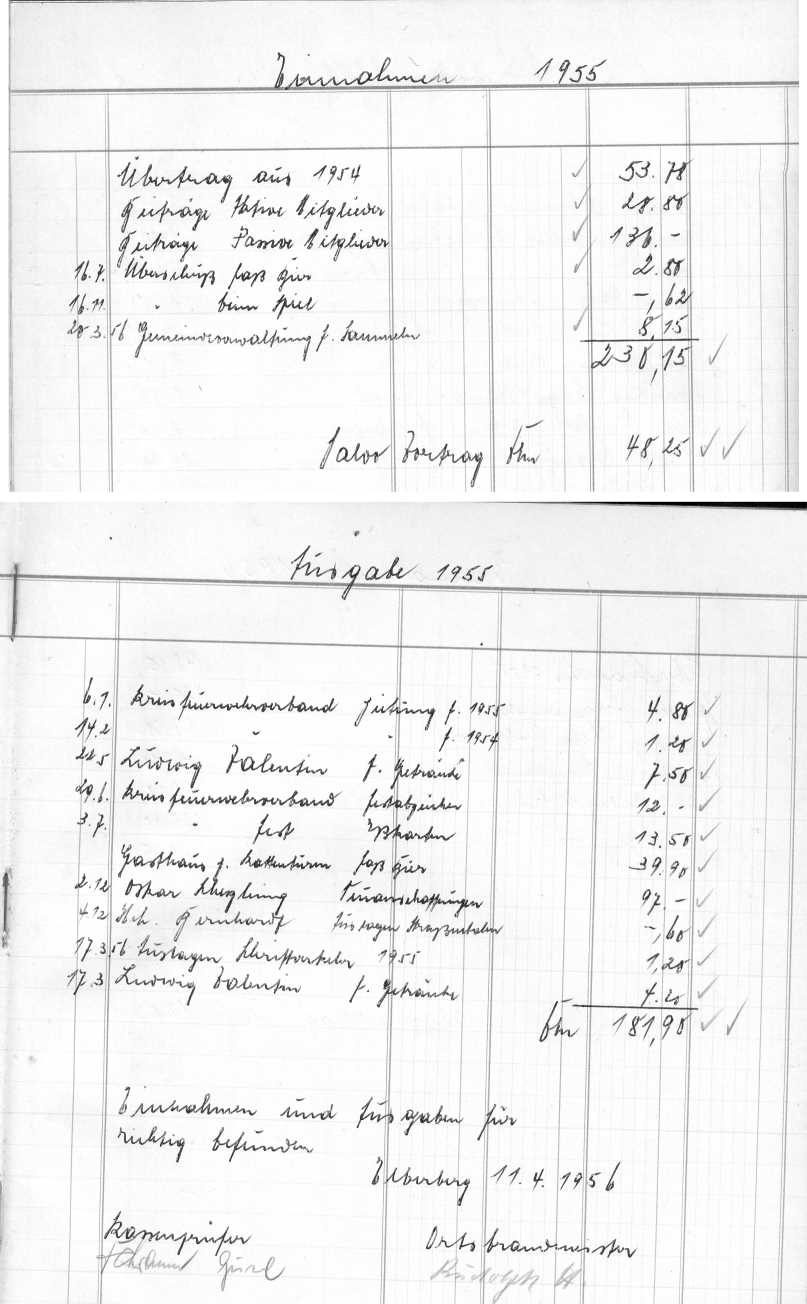 Einnahmen 1955
Übertrag aus 1954 53.78
Beiträge Aktive Mitglieder 28.80
Beiträge Passive Mitglieder 136.-
16.7. Überschuß Faß Bier 2.80
16.11. " beim Spiel -,62
20.3.56 Gemeindeverwaltung f. Sammeln 8,15
230,15
Saldo Vortrag DM 48,25
Ausgabe 1955
6.1. Kreisfeuerwehrverband Zeitung f. 1955 4.80
14.2 " " f. 1954 1.20
22.5 Ludwig Valentin f. Getränke 7.50
29.6. Kreisfeuerwehrverband Festabzeichen 12.-
3.7. " Fest Eßkarten 13.50
Gasthaus z. Kattenturm Faß Bier 39.90
2.12 Oskar Neuanschaffungen 97.-
4.12 Hch. Bernhardt Auslagen -,60
17.3.56 Auslagen Schriftverkehr 1955 1,20
17.3 Ludwig Valentin f. Getränke 4.20
DM 181,90
Einnahmen und Ausgaben für
richtig befunden
Elberberg 11.4.1956
Kassenprüfer Ortsbrandmeister
Rudolph H.